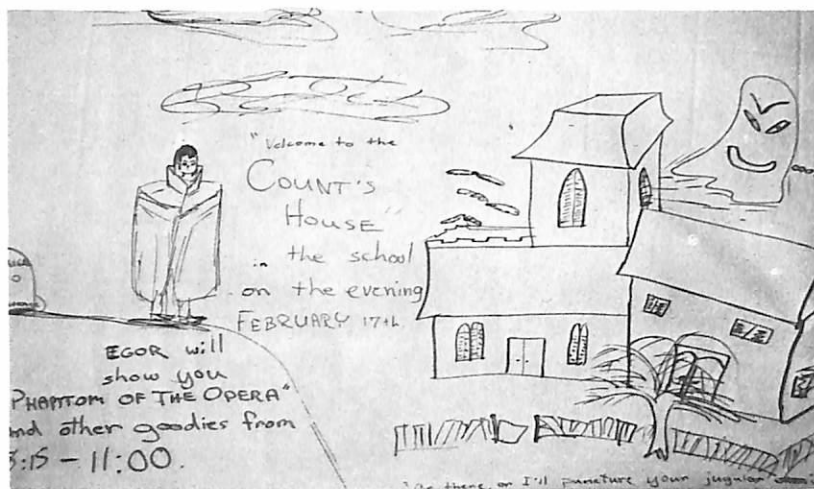 "Velcome to the
COUNT'S
HOUSE"
in the school
on the evening
FEBRUARY 17th
EGOR will
show you
PHANTOM OF THE OPERA"
and other goodies from
:15 - 11:00.
"Be there, or I'll puncture your jugular